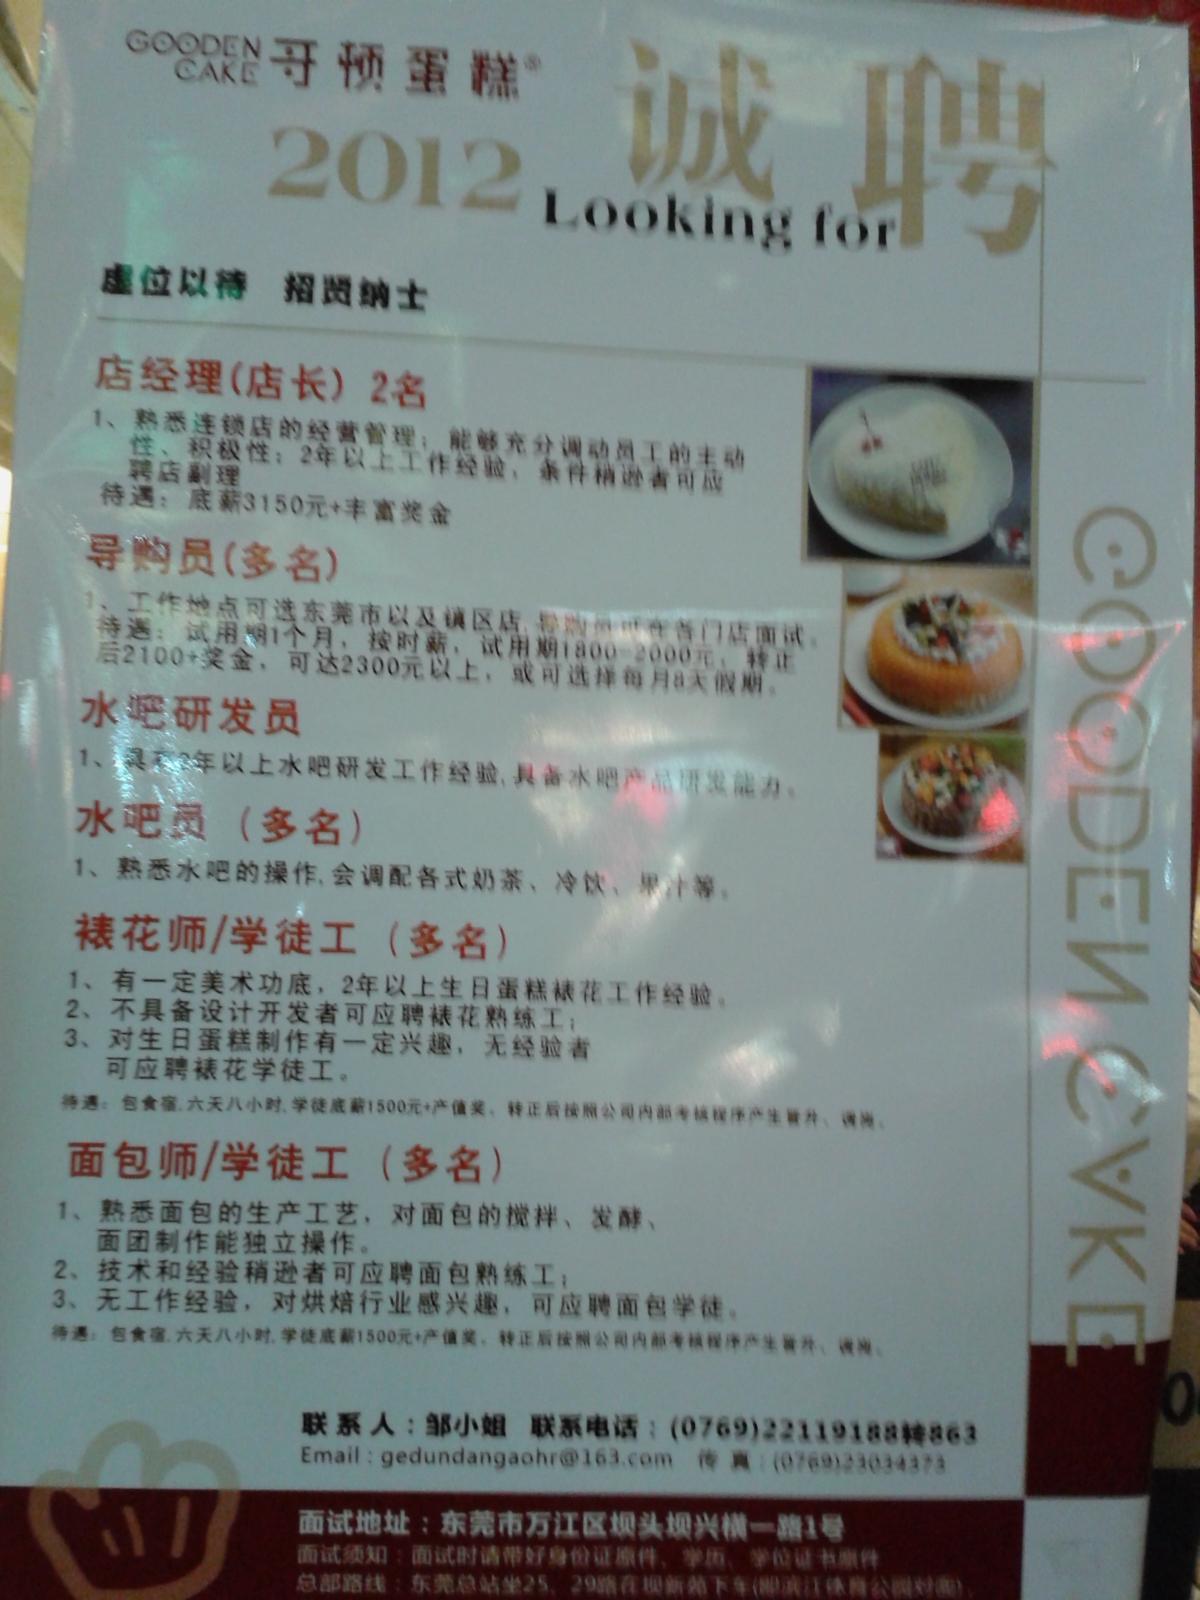 GOODEN
CAKE
哥顿蛋糕®
2012 诚聘
Looking for
虚位以待 招贤纳士
店经理(店长) 2名
1、熟悉连锁店的经营管理;能够充分调动员工的主动
性、积极性;2年以上工作经验,条件稍逊者可应
聘店副理
待遇:底薪3150元+丰富奖金
导购员(多名)
1、工作地点可选东莞市以及镇区店,
待遇:试用期1个月,按时薪,试用期1800-2000元,转正
后2100+奖金,可达2300元以上,或可选择每月8天假期。
水吧研发员
年以上水吧研发工作经验,具备水吧产品研发能力。
水吧员(多名)
1、熟悉水吧的操作,会调配各式奶茶、冷饮、果汁等。
裱花师/学徒工(多名)
1、有一定美术功底,2年以上生日蛋糕裱花工作经验。
2、不具备设计开发者可应聘裱花熟练工;
3、对生日蛋糕制作有一定兴趣,无经验者
可应聘裱花学徒工。
待遇:包食宿,六天八小时,学徒底薪1500元+产值奖,转正后按照公司内部考核程序产生晋升、调岗。
面包师/学徒工(多名)
1、熟悉面包的生产工艺,对面包的搅拌、发酵、
面团制作能独立操作。
2、技术和经验稍逊者可应聘面包熟练工;
3、无工作经验,对烘焙行业感兴趣,可应聘面包学徒。
待遇:包食宿,六天八小时,学徒底薪1500元+产值奖,转正后按照公司内部考核程序产生晋升、调岗。
联系人:邹小姐 联系电话:(0769)22119188转863
Email:gedundangaohr@163.com 传真:(0769)23034373
面试地址:东莞市万江区坝头坝兴横一路1号
面试须知:面试时请带好身份证原件、学历、学位证书原件
总部路线:东莞总站坐25、
GOODEN CAKE